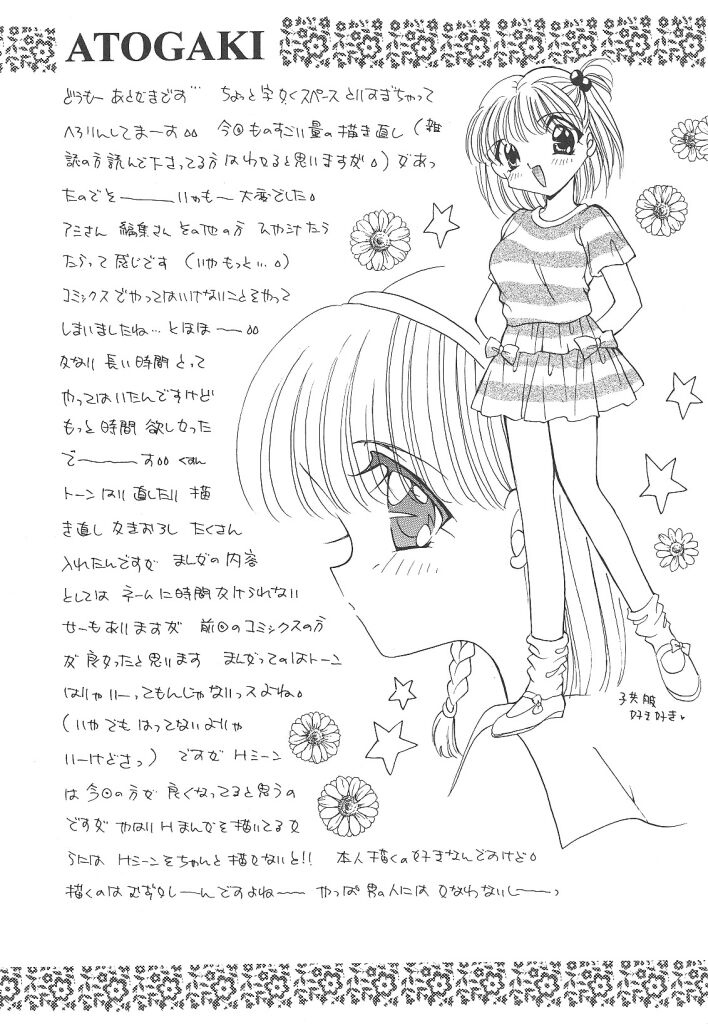 ATOGAKI
どうもー あとがきです… ちょっと字かくスペースとりすぎちゃって
へろりんしてまーす。。 今回ものすごい量の描き直し（雑
誌の方読んで下さってる方はわかると思いますが。）があっ
たのでそーーーいやもー 大変でした。
アミさん 編集さん その他の方 ひやあせたら
たらって感じです（いやもっと…。）
コミックスでやってはいけないことをやって
しまいましたね… とほほーー。。
かなり 長い時間 とって
やってはいたんですけど
もっと 時間 欲しかった
でーーーーす。。
トーン はり 直したり 描
き直し かきおろし たくさん
入れたんですが まんがの内容
としては ネームに時間 かけられない
せーもありますが 前回のコミックスの方
が 良かったと思います まんがってのはトーン
はりゃ いーってもんじゃないっスよね。
（いや でも はってないよりゃ
いーけどさっ） ですが Hシーン
は 今回の方が 良くなってると思うの
ですが やはり Hまんがを描いてるか
らには Hシーンをちゃんと描かないと!! 本人描くの好きなんですけど。
描くのは むずかしーんですよね〜〜 やっぱ 男の人には かなわないしーーっ
子供服
好き好き♥